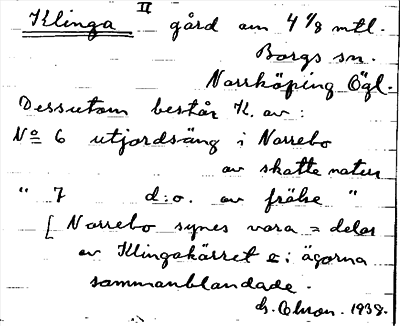 Klinga II gård om 4 1/8 mtl.
Borgs sn.
Norrköping Ögl.
Dessutom består K. av:
No 6 utjordsäng i Norrebo
av skatte natur
" 7 d:o. av frälse "
[ Norrebo synes vara = delar
av Klingakärret &: i ägorna
sammanblandade.
1938.